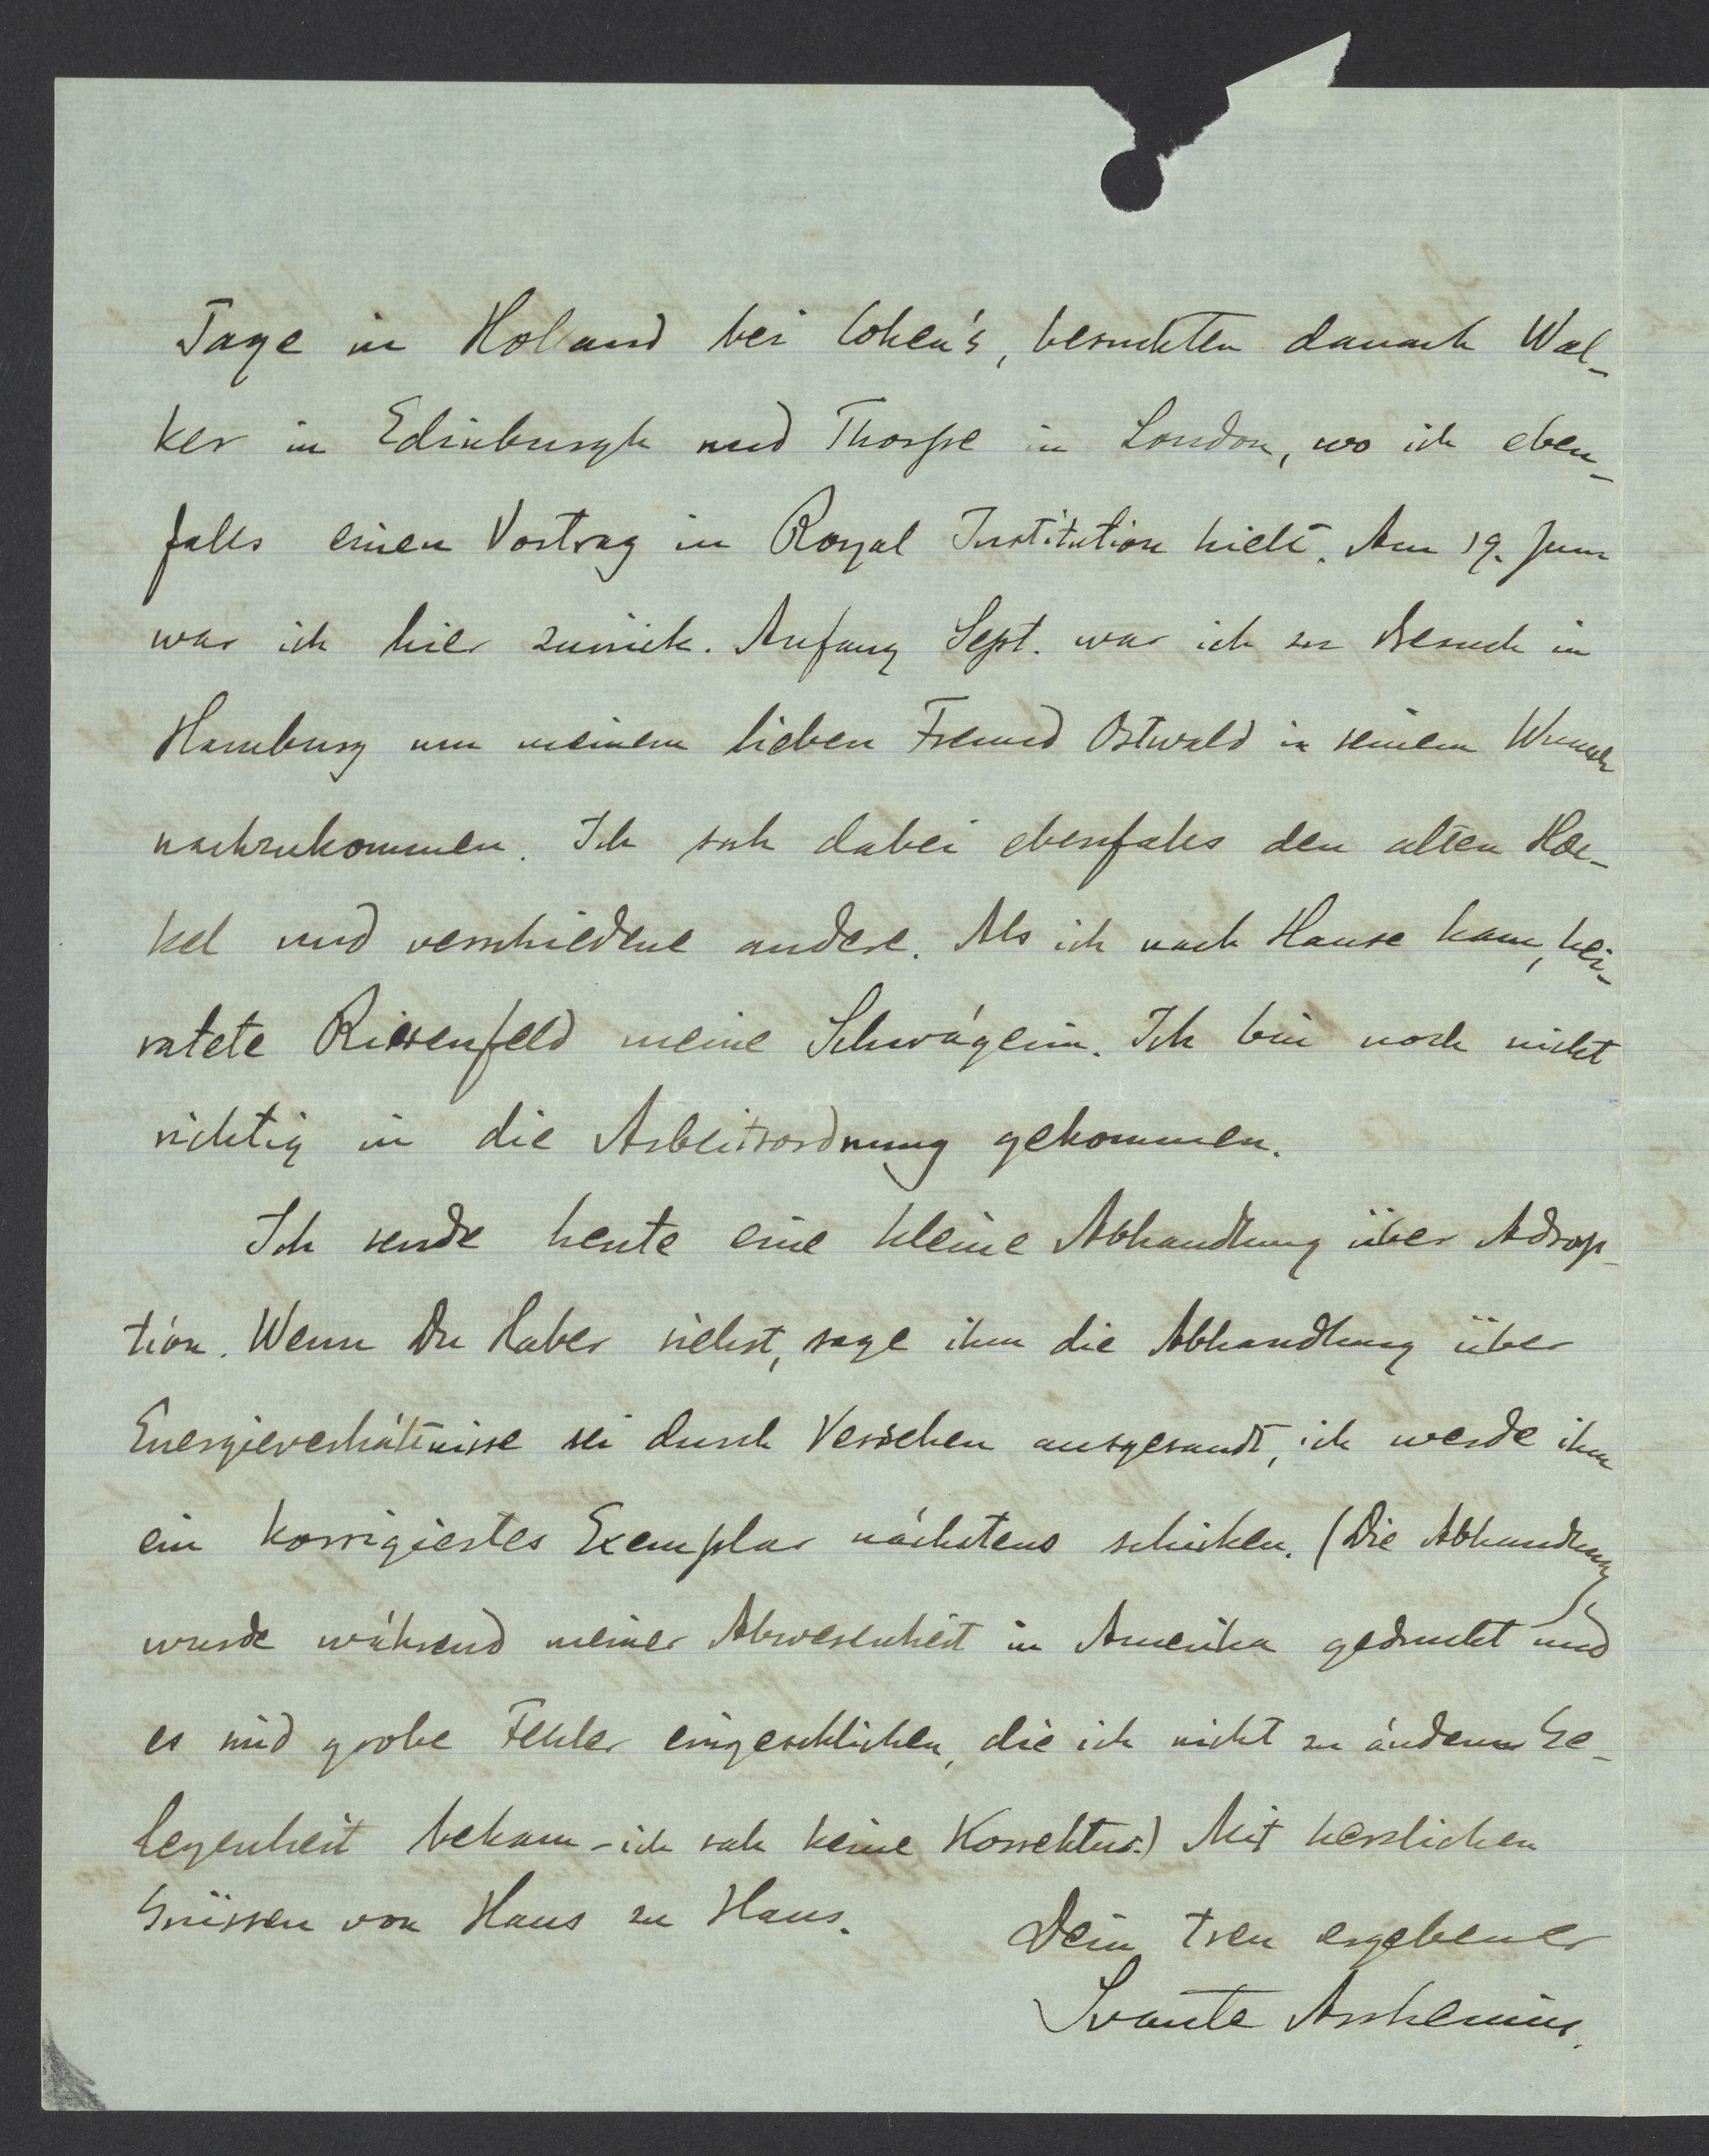 Tage in Holland bei Cohen's, besuchten danach Wal-
ker in Edinburgh und Thorpe in London, wo ich eben-
falls einen Vortrag in Royal Institution hielt. Am 19. Juni
war ich hier zurück. Anfang Sept. war ich zu Besuch in
Hamburg um meinem lieben Freund Ostwald in seinem Wunsch
nachzukommen. Ich sah dabei ebenfalls den alten Hae-
kel und verschiedene andere. Als ich nach Hause kam, hei-
ratete Riesenfeld meine Schwägerin. Ich bin noch nicht
richtig in die Arbeitsordnung gekommen.
Ich sende heute eine kleine Abhandlung über Adsorp-
tion. Wenn Du Haber siehst, sage ihm die Abhandlung über
Energieverhältnisse sei durch Versehen ausgesandt, ich werde ihm
ein korrigiertes Exemplar nächstens schicken. (Die Abhandlung
wurde während meiner Abwesenheit in Amerika gedruckt und
es sind grobe Fehler eingeschlichen, die ich nicht zu ändern Ge-
legenheit bekam - ich sah keine Korrektur.) Mit herzlichen
Grüssen von Haus zu Haus.
Dein treu ergebener
Svante Arrhenius.